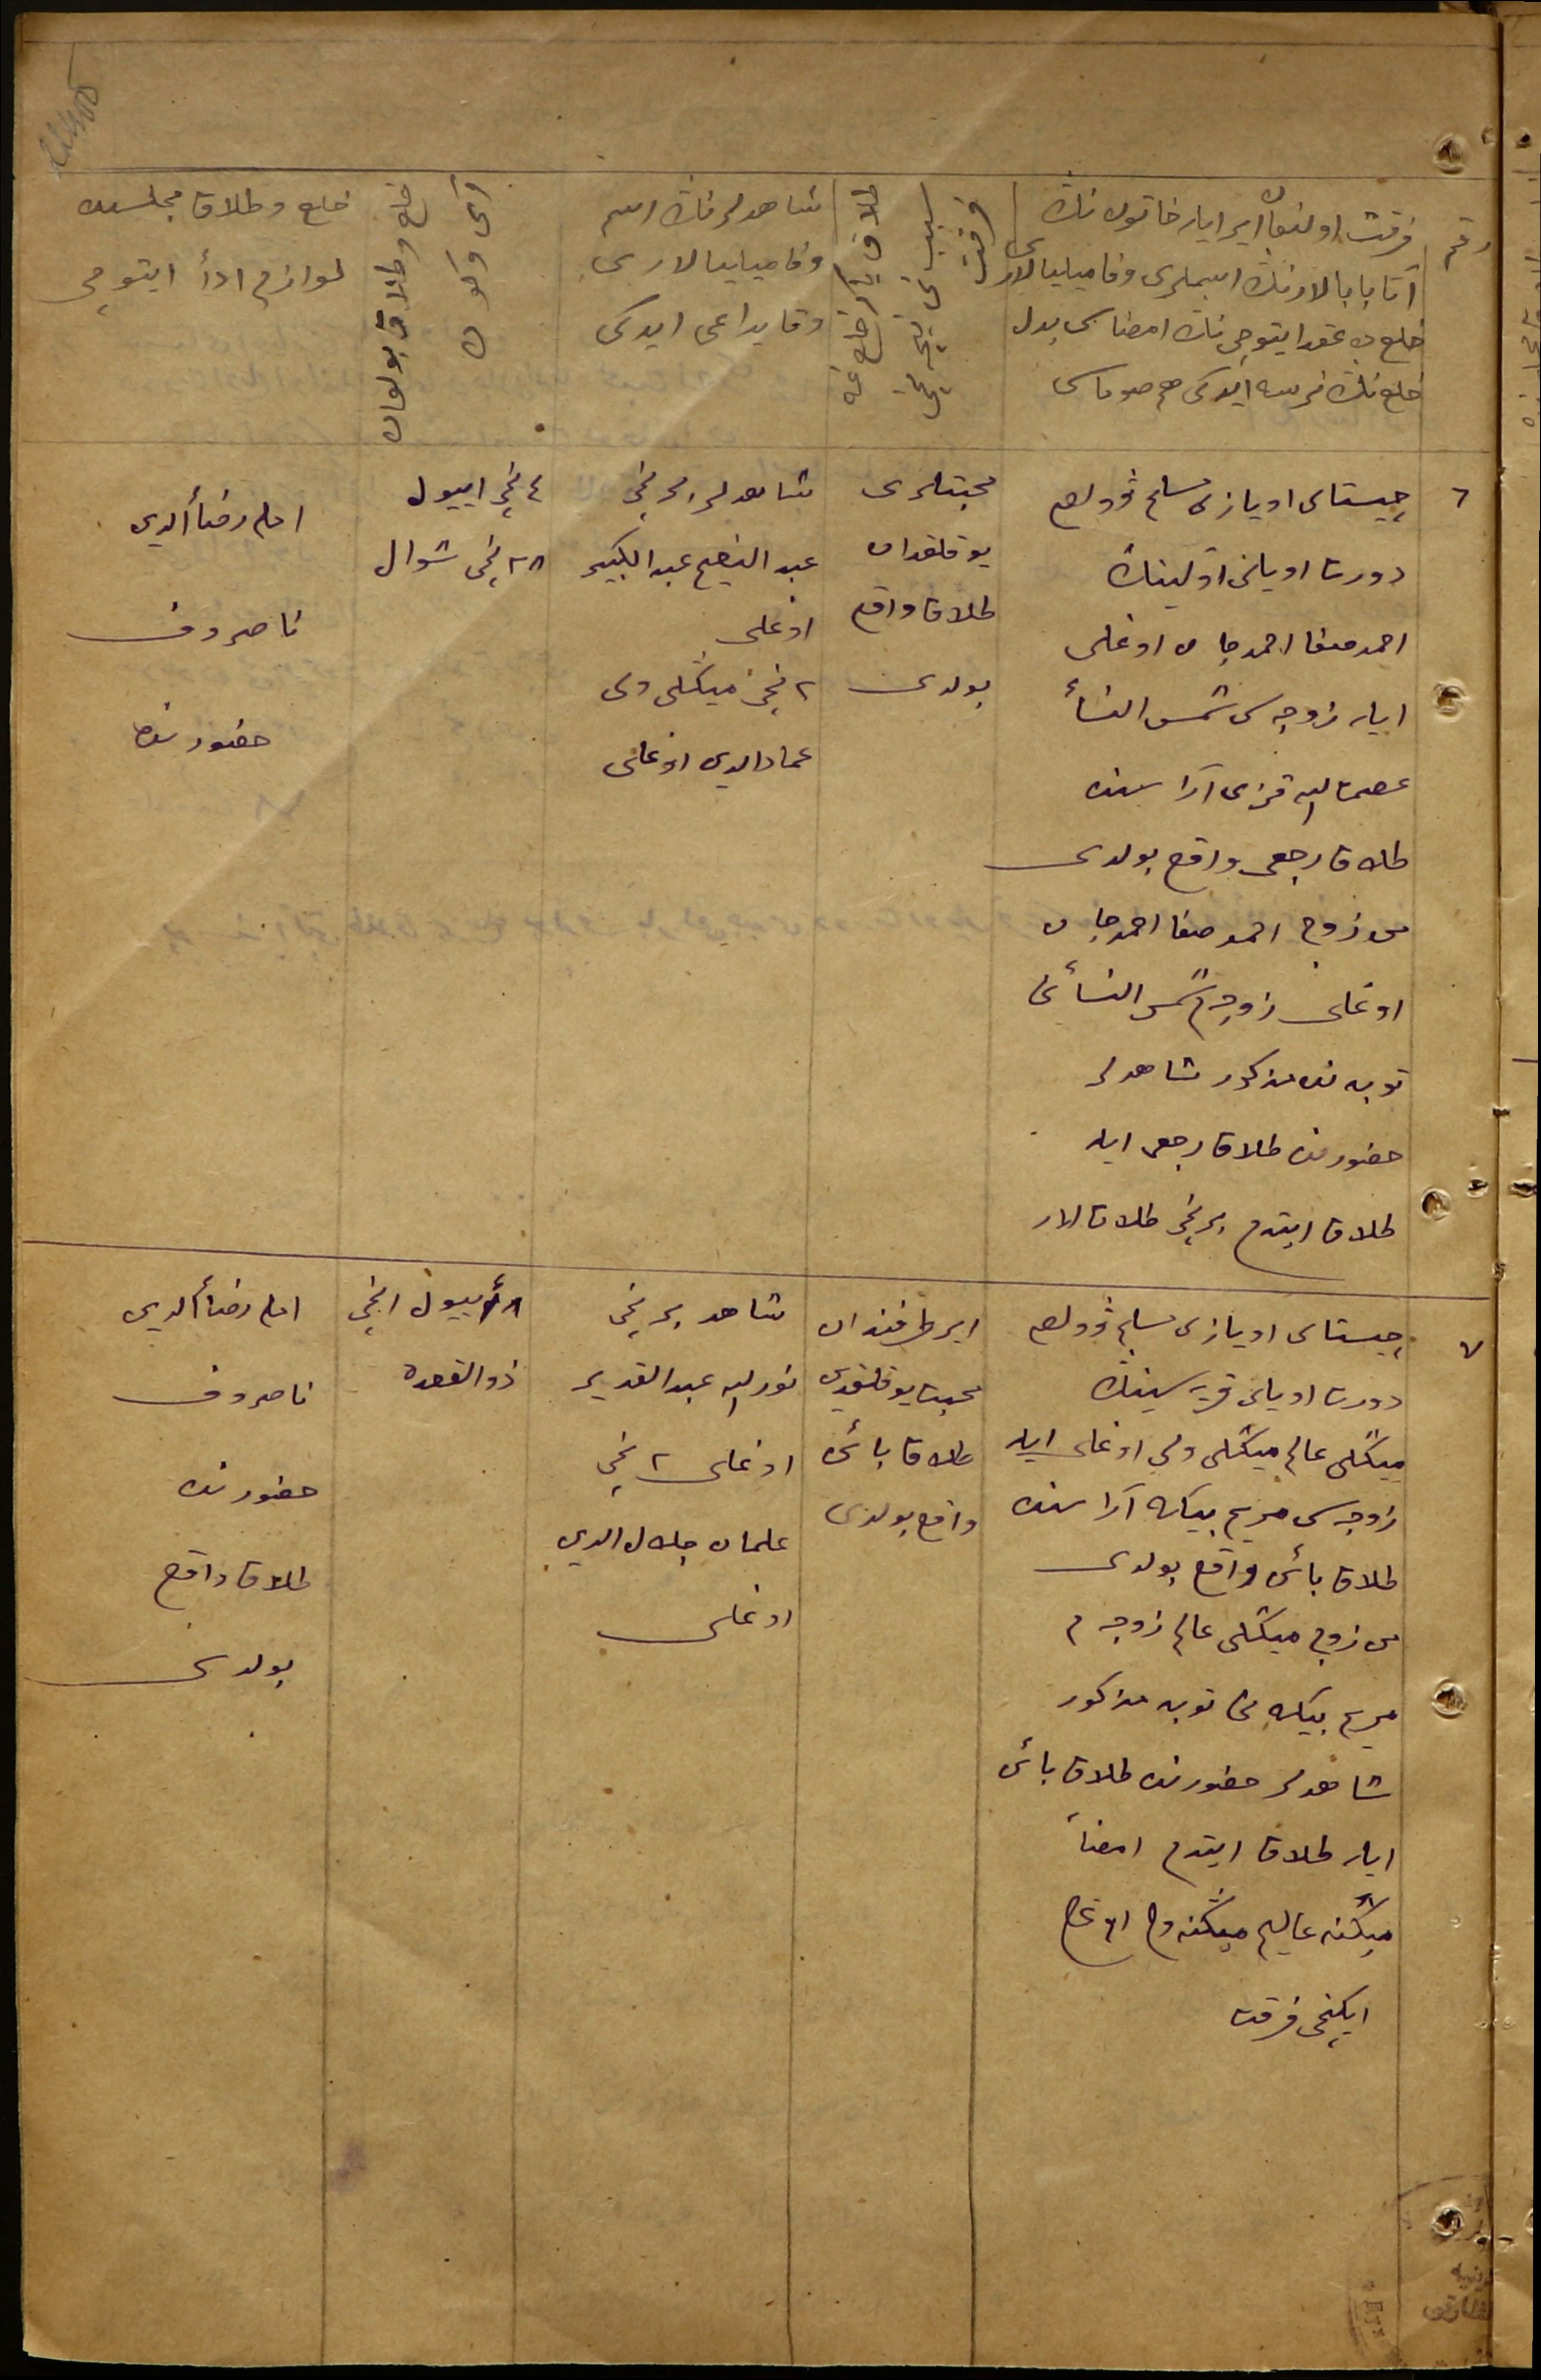 رقم
فرقت اولنغان ایر ایلر خاتون ننڭ
آتا بابالارننڭ اسملری وفامیلیالاری
خلع ده عقد ایتوچی ننڭ امضاسی بدل
خلع ننڭ نرسه ایدکی هم صوماسی
فرقت
سببی نی
طلاق یا خلع غه
شاهدلرننڭ اسم
وفامیلیالاری
وقایداغی ایدکی
آی و کون
خلع وطلاق بولغان
خلع وطلاق مجلسنده
لوازم ادأ ایتوچی
٦
چیستای اویازی مسلم ڤولوص
دورت اویلی آولیننڭ
احمدصفا احمدجان اوغلی
ایله زوجه سی شمس النسأ
عصمت الله قزی آراسنده
طلاق رجعی واقع بولدی
من زوج احمدصفا احمدجان
اوغلی زوجه م شمس النسأنی
توبه نده مذکور شاهدلر
حضورنده طلاق رجعی ایله
طلاق ایتدم برنچی طلاقلار
محبتلری
یوقلقدان
طلاق واقع
بولدی
شاهدلر برنچی
عبدالفصیح عبدالکبیر
اوغلی
٢ نچی میڭلی ولی
عمادالدین اوغلی
٤ نچی اییول
٢٨ نچی شوال
امام رضأالدین
ناصروف
حضورنده
٧
چیستای اویازی مسلم ڤولوص
دورت اویلی قریه سیننڭ
میڭلی عالم میڭلی ولی اوغلی ایله
زوجه سی مریم بیکه آراسنده
طلاق بائن واقع بولدی
من زوج میڭلی عالم زوجه م
مریم بیکه نی توبه مذکور
شاهدلر حضورنده طلاق بائن
ایله طلاق ایتدم امضأ
ایکنچی فرقت
ایر طرفندان
محبت یوقلقدن
طلاق بائن
واقع بولدی
شاهد برنچی
نورالله عبدالقدیر
اوغلی ٢ نچی
علمان جلال الدین
اوغلی
اییول ١نچی
ذوالقعده
امام رضأالدین
ناصروف
حضورنده
طلاق واقع
بولدی